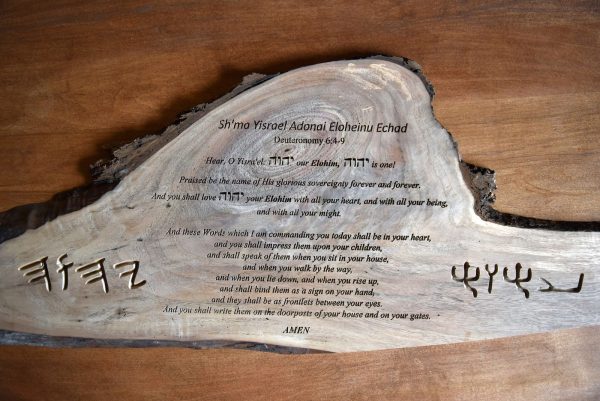 Sh'ma Yisrael Adonai Eloheinu Echad
Deuteronomy 6:4-9
Hear, O Yisra'el: יהוה our Elohim, יהוה is one!
Praised be the name of His glorious sovereignty forever and forever.
And you shall love יהוה your Elohim with all your heart, and with all your being,
and with all your might.
And these Words which I am commanding you today shall be in your heart,
and you shall impress them upon your children,
and shall speak of them when you sit in your house,
and when you walk by the way,
and when you lie down, and when you rise up,
and shall bind them as a sign on your hand,
and they shall be as frontlets between your eyes.
And you shall write them on the doorposts of your house and on your gates.
AMEN
𐤉𐤄𐤅𐤄